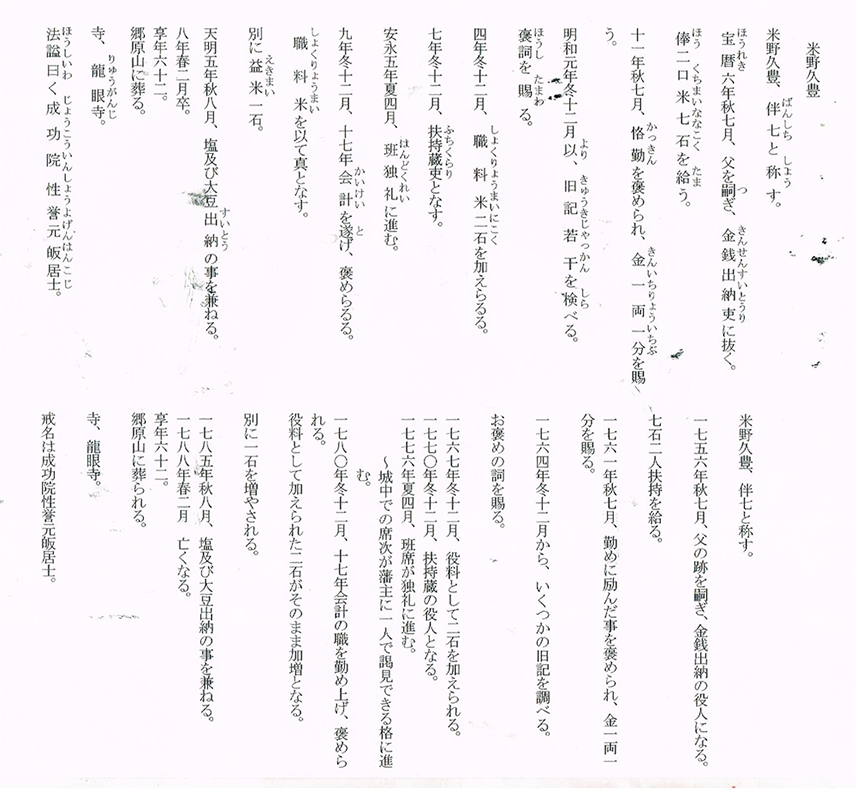 米野久豊
米野久豊、伴七と称す。
宝暦六年秋七月、父を嗣ぎ、金銭出納吏に抜く。
俸二口米七石を給う。
十一年秋七月、恪勤を褒められ、金一両一分を賜
う。
明和元年冬十二月以、旧記若干を検べる。
褒詞を賜る。
四年冬十二月、職料米二石を加えらるる。
七年冬十二月、扶持蔵吏となす。
安永五年夏四月、班独礼に進む。
九年冬十二月、十七年会計を遂げ、褒めらるる。
職料米を以て真となす。
別に益米一石。
天明五年秋八月、塩及び大豆出納の事を兼ねる。
八年春二月卒。
享年六十二。
郷原山に葬る。
寺、龍眼寺。
法謚曰く成功院性誉元皈居士。
米野久豊、伴七と称す。
一七五六年秋七月、父の跡を嗣ぎ、金銭出納の役人になる。
七石二人扶持を給る。
一七六一年秋七月、勤めに励んだ事を褒められ、金一両一
分を賜る。
一七六四年冬十二月から、いくつかの旧記を調べる。
お褒めの詞を賜る。
一七六七年冬十二月、役料として二石を加えられる。
一七七〇年冬十二月、扶持蔵の役人となる。
一七七六年夏四月、班席が独礼に進む。
～城中での席次が藩主に一人で謁見できる格に進
む。
一七八〇年冬十二月、十七年会計の職を勤め上げ、褒めら
れる。
役料として加えられた二石がそのまま加増となる。
別に一石を増やされる。
一七八五年秋八月、塩及び大豆出納の事を兼ねる。
一七八八年春二月　亡くなる。
享年六十二。
郷原山に葬られる。
寺、龍眼寺。
戒名は成功院性誉元皈居士。